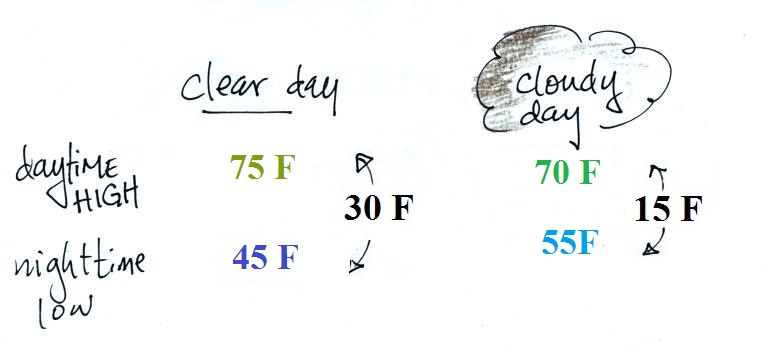 clear day
cloudy
day
daytime
HIGH
75 F
30 F
70 F
15 F
nighttime
low
45 F
55F